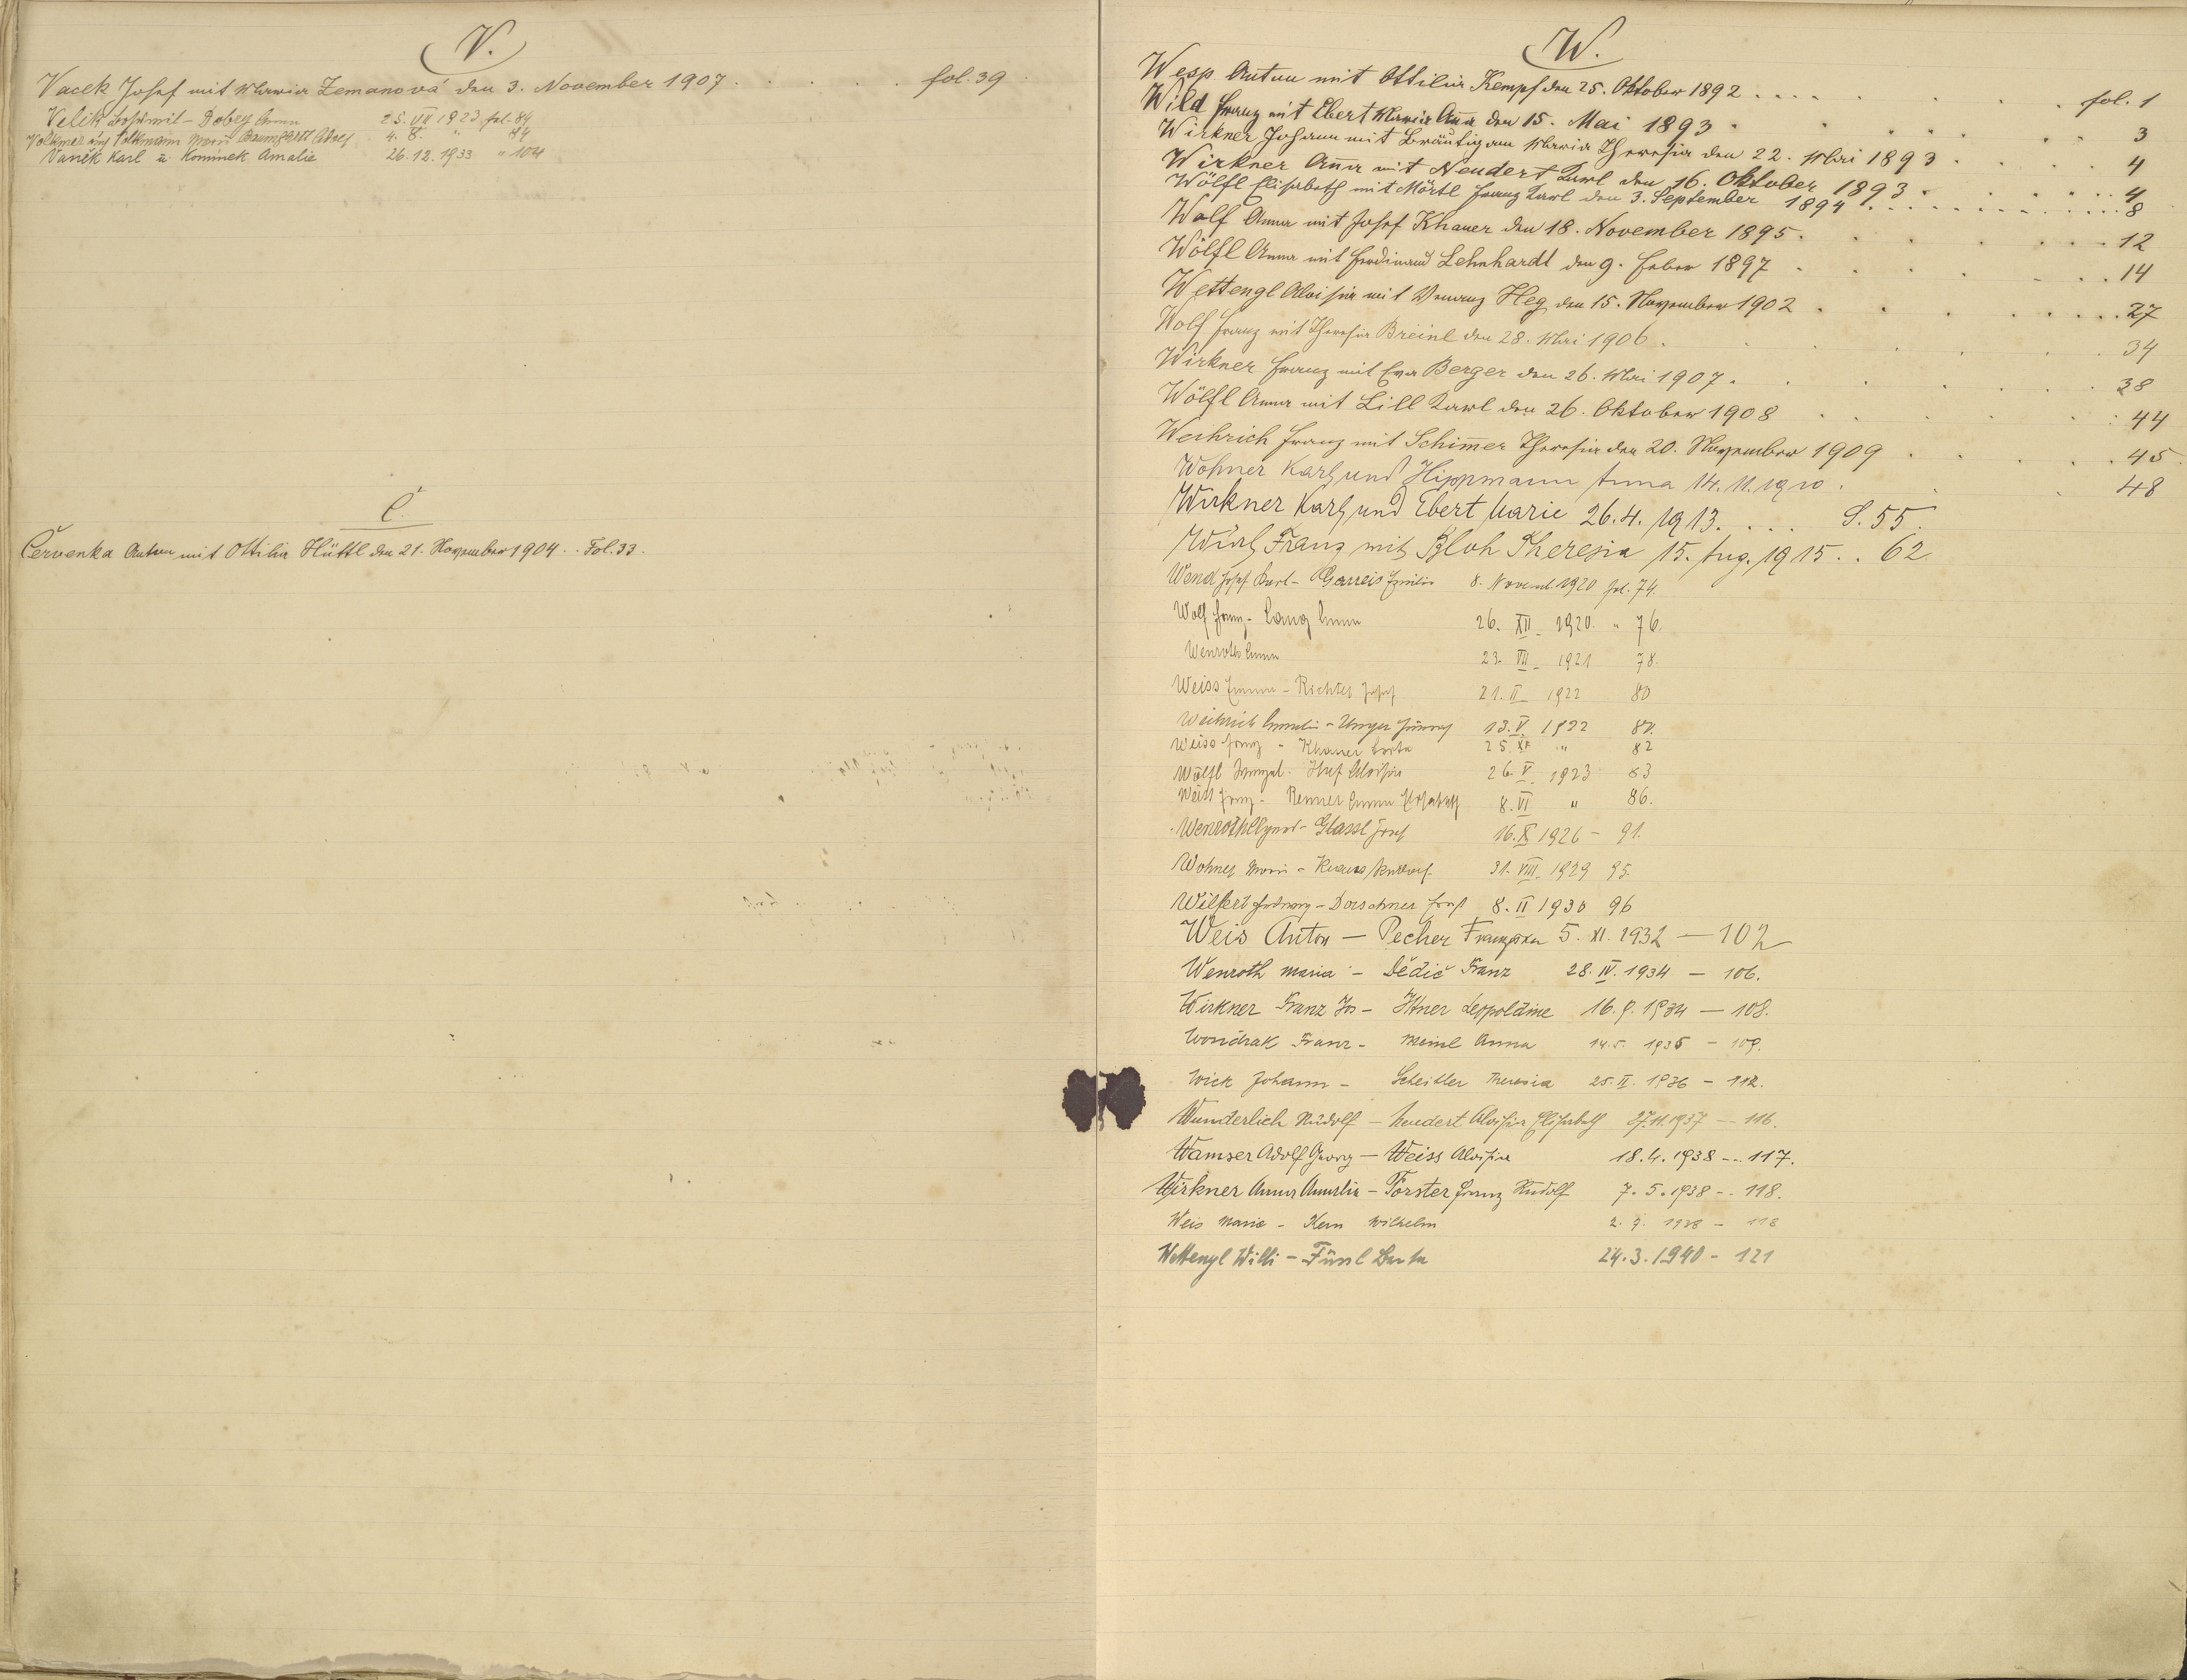 V.
Vacek Josef mit Maria Zemanová den 3. November 1907 . . . . . . fol. 39
Velik - Dobry Anna 25. VII 1923 fol. 84
Volkmer Volkmann Marie Baumgartl Adolf 4. " 84
Vaněk Karl u. Kominek Amalie 26.12.1933 " 104
Č.
Červenka Anton mit Ottilia Hüttl den 21. November 1904 . . Fol. 33.
W.
Wesp Anton mit Ottilia Kempf den 25. Oktober 1892 . . . . fol. 1
Wild Franz mit Ebert Maria Anna den 15. Mai 1893 . . . . 3
Wirkner Johann mit Bräutigam Maria Theresia den 22. Mai 1893 . . . . 4
Wirkner Anna mit Neudert Karl den 16. Oktober 1893 . . . . 4
Wölfl Elisabeth mit Mörtl Franz Karl den 3. September 1894 . . . . 8
Wolf Anna mit Josef Khauer den 18. November 1895 . . . . 12
Wölfl Anna mit Ferdinand Lehnhardt den 9. Feber 1897 . . . . 14
Wettengl Aloisia mit Wenanz Heg den 15. November 1902 . . . . 27
Wolf Franz mit Theresia Breinl den 28. Mai 1906 . . . . 34
Wirkner Franz mit Eva Berger den 26. Mai 1907 . . . . 38
Wölfl Anna mit Lill Karl den 26. Oktober 1908 . . . . 44
Weihrich Franz mit Schimer Theresia den 20. November 1909 . . . . 45
Wohner Karl und Hippmann Anna 14.11.1910 . . . 48
Wirkner Karl und Ebert Marie 26.4.1913 . . . . S. 55.
Wirl Franz mit Bloh Theresia 15. Aug. 1915 . . 62
Wend Josef Karl - Garreis Emilie 8. Novemb. 1920 fol. 74.
Wolf Franz - Lang Anna 26. XII 1920 " 76.
Wenroth Anna 23. VII 1921 78.
Weiss Emma - Richter Josef 21. II 1922 80
Weihrich Amalie - Unger 13. V. 1922 81.
Weiss Franz - Khauer Berta 25. XI " 82
Wölfl - Huf Aloisia 26. V. 1923 83
Weiss Franz - Renner Anna Elisabeth 8. VI " 86.
Wenroth - Glassl Josef 16. X 1926 - 91.
Wohner Marie - Krauss 31. VIII. 1929 95.
Wilfert Hedwig - Dorschner Josef 8. II 1930 96
Weis Anton — Pecher Franziska 5. XI. 1932 — 102
Wenroth Maria - Dědič Franz 28. IV. 1934 — 106.
Wirkner Franz Jos - Ittner Leopoldine 16.9.1934 — 108.
Wondrak Franz - Meinl Anna 14.5. 1935 - 109.
Wick Johann - Scheitler Theresia 25. II. 1936 - 112.
Wunderlich Rudolf - Neudert Aloisia Elisabeth 27.11.1937 -- 116.
Wamser Adolf Georg — Weiss Aloisia 18.4.1938 --- 117.
Wirkner Anna Amalia - Forster Franz Rudolf 7.5.1938 -- 118.
Weis Marie - Kern Wilhelm 2. 9. 1938 - 118
Wettengl Willi - Fünl Berta 24.3.1940 - 121